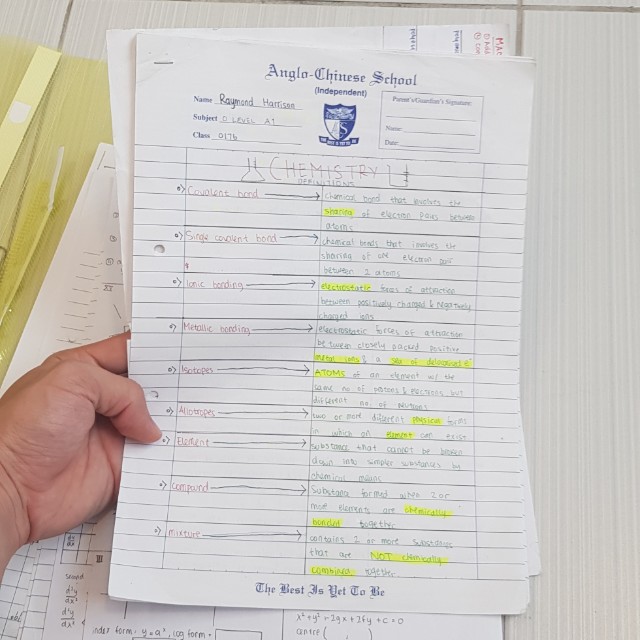 Anglo-Chinese School
(Independent)
Name Raymond Harrison
Subject O LEVEL A1
Class
Parent's/Guardian's Signature:
Name:
Date:
CHEMISTRY
DEFINITIONS
Covalent bond
chemical bond that involves the
sharing of electron pairs between
atoms
Single covalent bond
chemical bonds that involves the
sharing of one electron pair
between 2 atoms
Ionic bonding
electrostatic forms of attraction
between positively charged & negatively
charged ions
Metallic bonding
electrostatic forces of attraction
between closely packed positive
metal ions & a sea of delocalised
Isotopes
ATOMS of an element w/ the
same no. of protons & electrons but
different no. of neutrons
Allotropes
two or more different physical forms
in which an element can exist
Element
substance that cannot be broken
down into simpler substances by
chemical means
compound
Substance formed when 2 or
more elements are chemically
bonded together
mixture
contains 2 or more substances
that are NOT chemically
combined together
The Best Is Yet To Be
index form: y = aˣ, log form =
x² + y² + 2gx + 2fy + c = 0
centre (